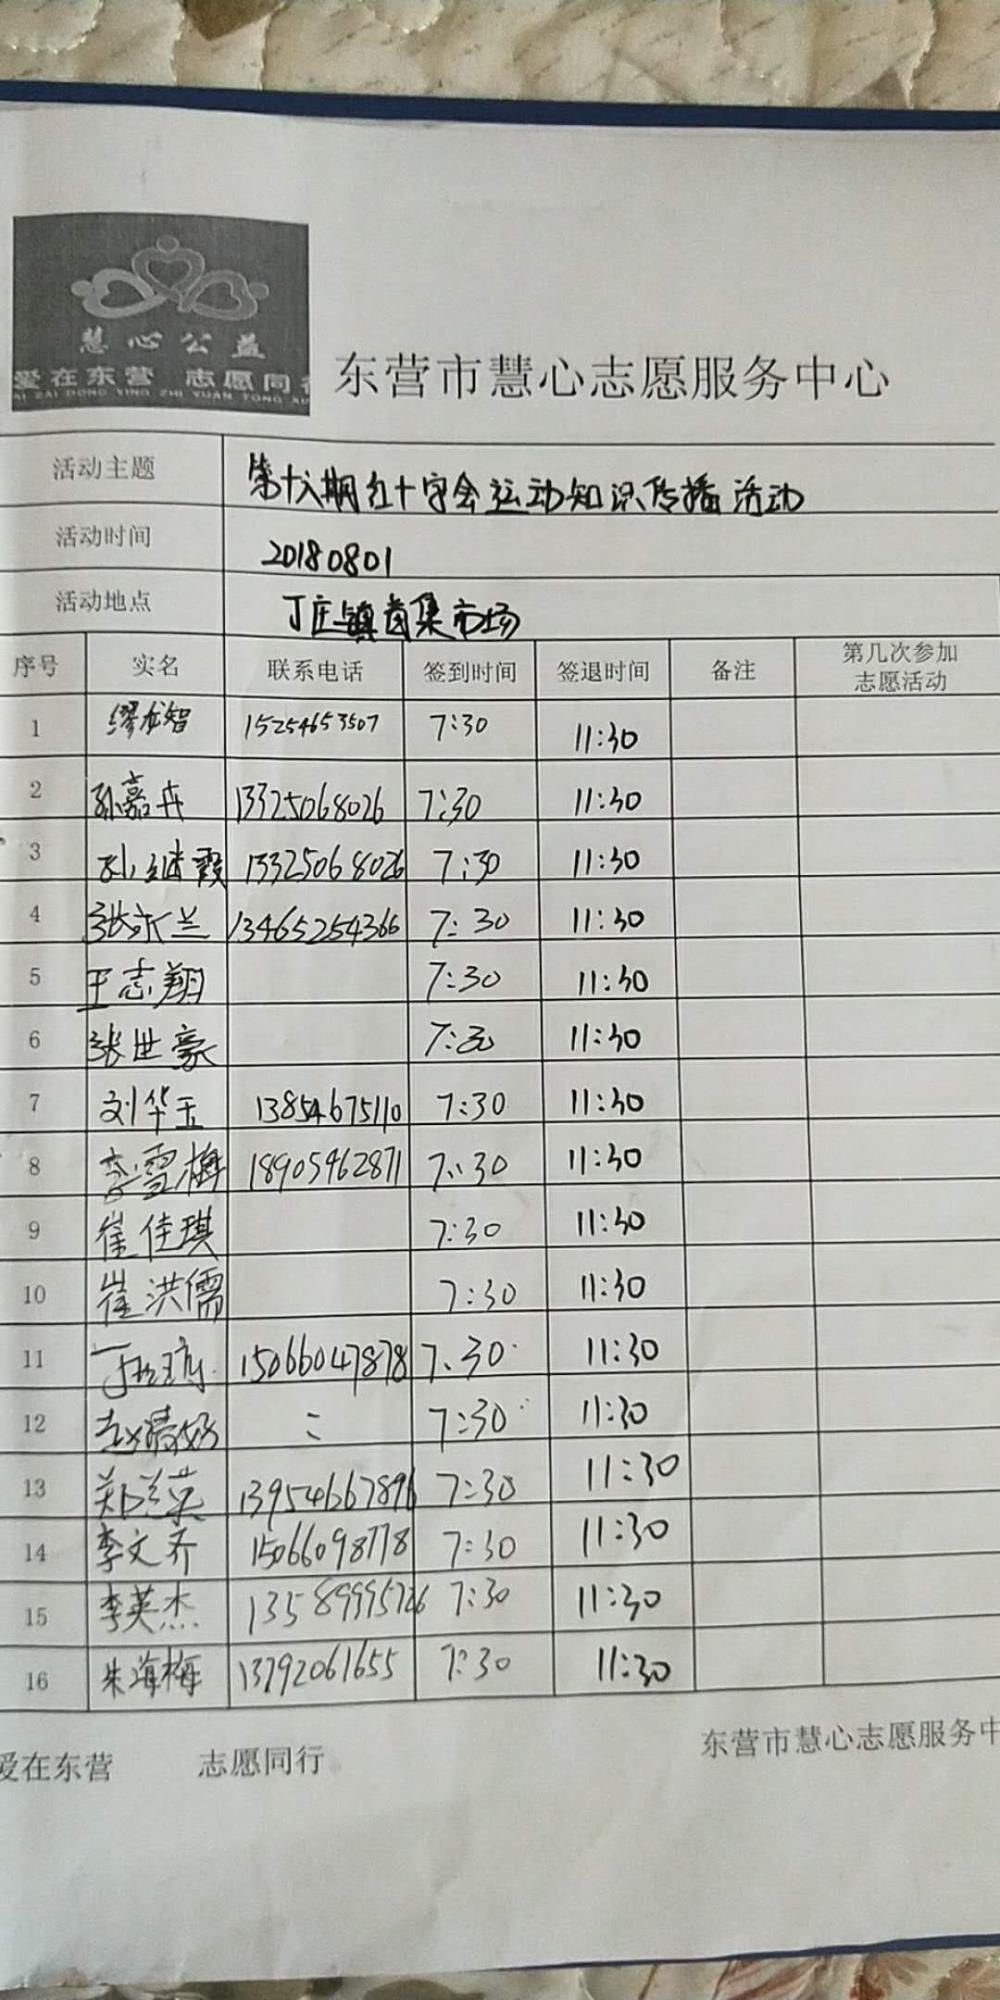 慧心公益
爱在东营 志愿同行
AI ZAI DONG YING ZHI YUAN TONG XI
东营市慧心志愿服务中心
活动主题 第十八期红十字会运动知识传播活动
活动时间 20180801
活动地点 丁庄镇首集市场
序号 实名 联系电话 签到时间 签退时间 备注 第几次参加
志愿活动
1 缪龙智 15254653507 7:30 11:30
2 孙嘉卉 13325068026 7:30 11:30
3 孙继霞 13325068026 7:30 11:30
4 张永兰 13465254366 7:30 11:30
5 王志翔 7:30 11:30
6 张世豪 7:30 11:30
7 刘华玉 13854675110 7:30 11:30
8 李雪梅 18905462871 7:30 11:30
9 崔佳琪 7:30 11:30
10 崔洪儒 7:30 11:30
11 15066047878 7:30 11:30
12 7:30 11:30
13 郑兰英 139546667896 7:30 11:30
14 李文乔 15066098778 7:30 11:30
15 李英杰 7:30 11:30
16 朱海梅 13792061655 7:30 11:30
爱在东营 志愿同行
东营市慧心志愿服务中